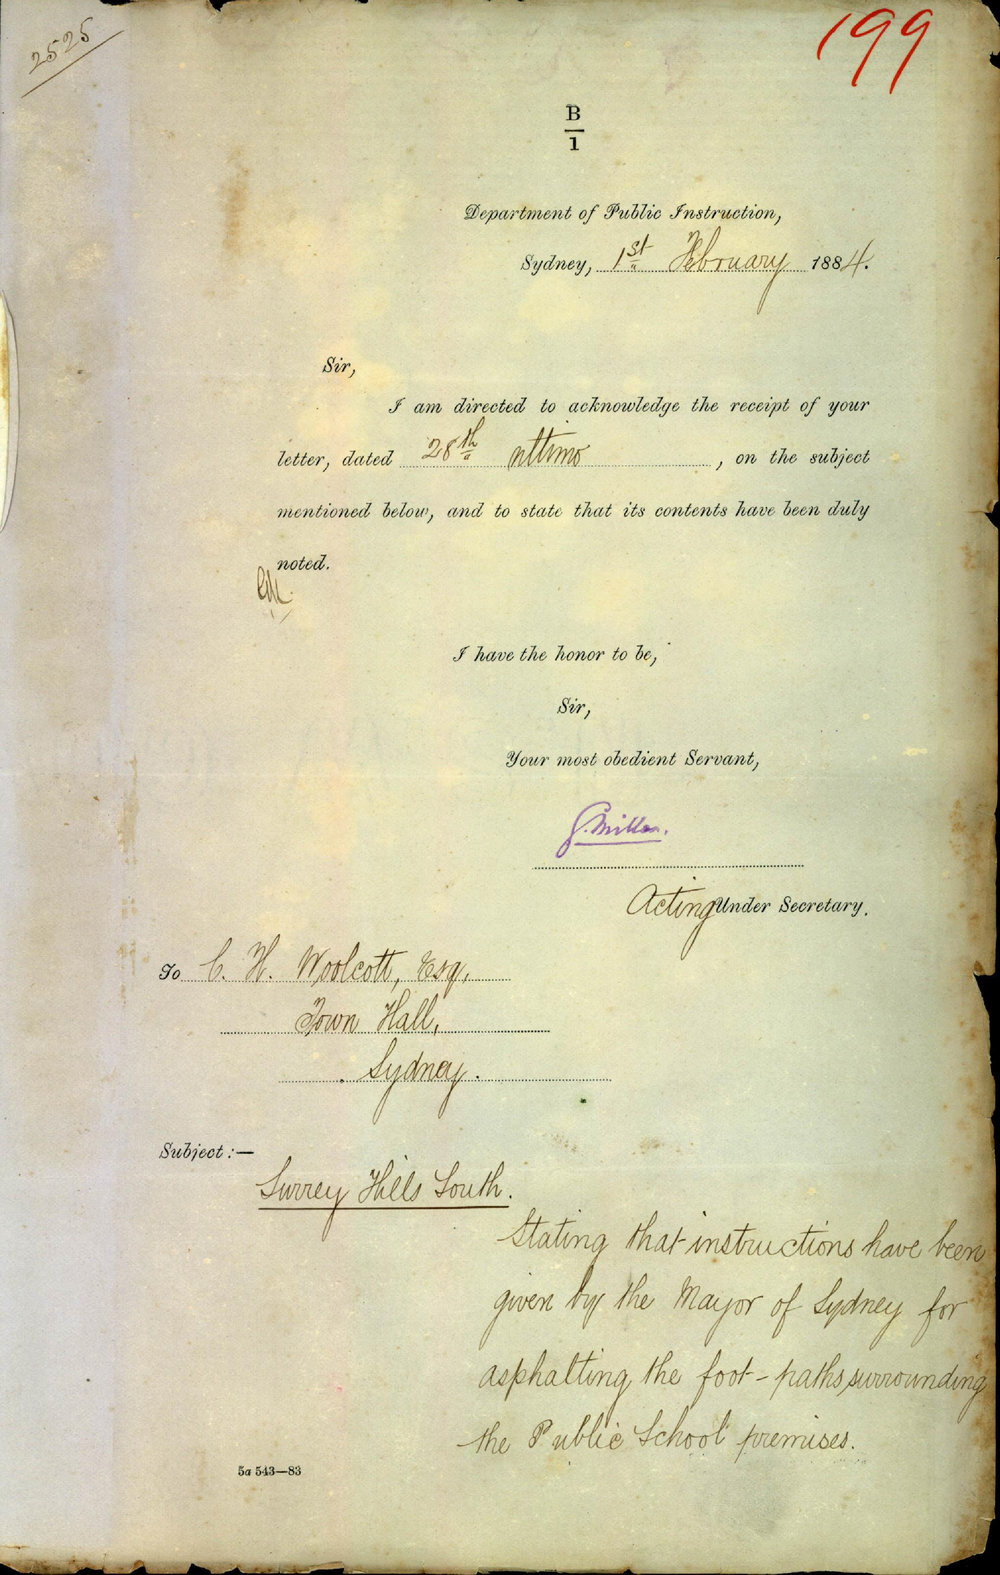 2525
199
B
1
Department of Public Instruction,
Sydney, 1st February 1884.
Sir,
I am directed to acknowledge the receipt of your
letter, dated 28th ultimo, on the subject
mentioned below, and to state that its contents have been duly
noted.
I have the honor to be,
Sir,
Your most obedient Servant,
G. Miller.
Acting Under Secretary.
To C. H. Woolcott, Esq,
Town Hall,
Sydney.
Subject:—
Surrey Hills South.
Stating that instructions have been
given by the Mayor of Sydney for
asphalting the foot-paths surrounding
the Public School premises.
5a 543—83